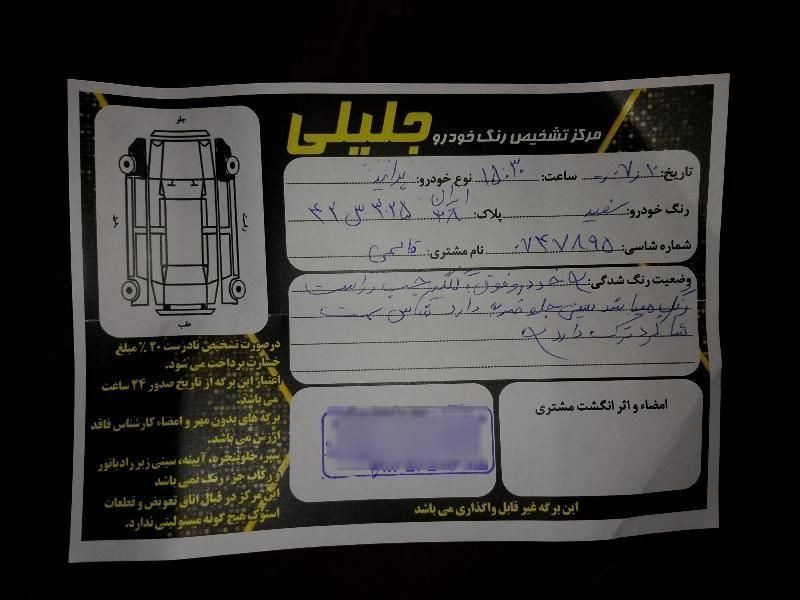 مرکز تشخیص رنگ خودرو جلیلی
تاریخ: ساعت: ۱۵:۳۰ نوع خودرو: پراید
رنگ خودرو: سفید پلاک: ایران ۳۸ ۳۲۵ س ۴۲
شماره شاسی: ۰۷۴۷۸۹۵ نام مشتری: قاسمی
وضعیت رنگ شدگی: خودرو فوق گلگیر چپ و راست
رنگ میباشد سینی جلو ضربه دارد شاسی سمت
شاگرد ترک دارد
امضاء و اثر انگشت مشتری
این برگه غیر قابل واگذاری می باشد
جلو
چپ
راست
عقب
درصورت تشخیص نادرست ۲۰٪ مبلغ
خسارت پرداخت می شود.
اعتبار این برگه از تاریخ صدور ۲۴ ساعت
می باشد.
برگه های بدون مهر و امضاء کارشناس فاقد
ارزش می باشد.
سپر، جلوپنجره، آیینه، سینی زیر رادیاتور
و رکاب جزء رنگ نمی باشد
این مرکز در قبال اتاق تعویض و قطعات
استوک هیچ گونه مسئولیتی ندارد.